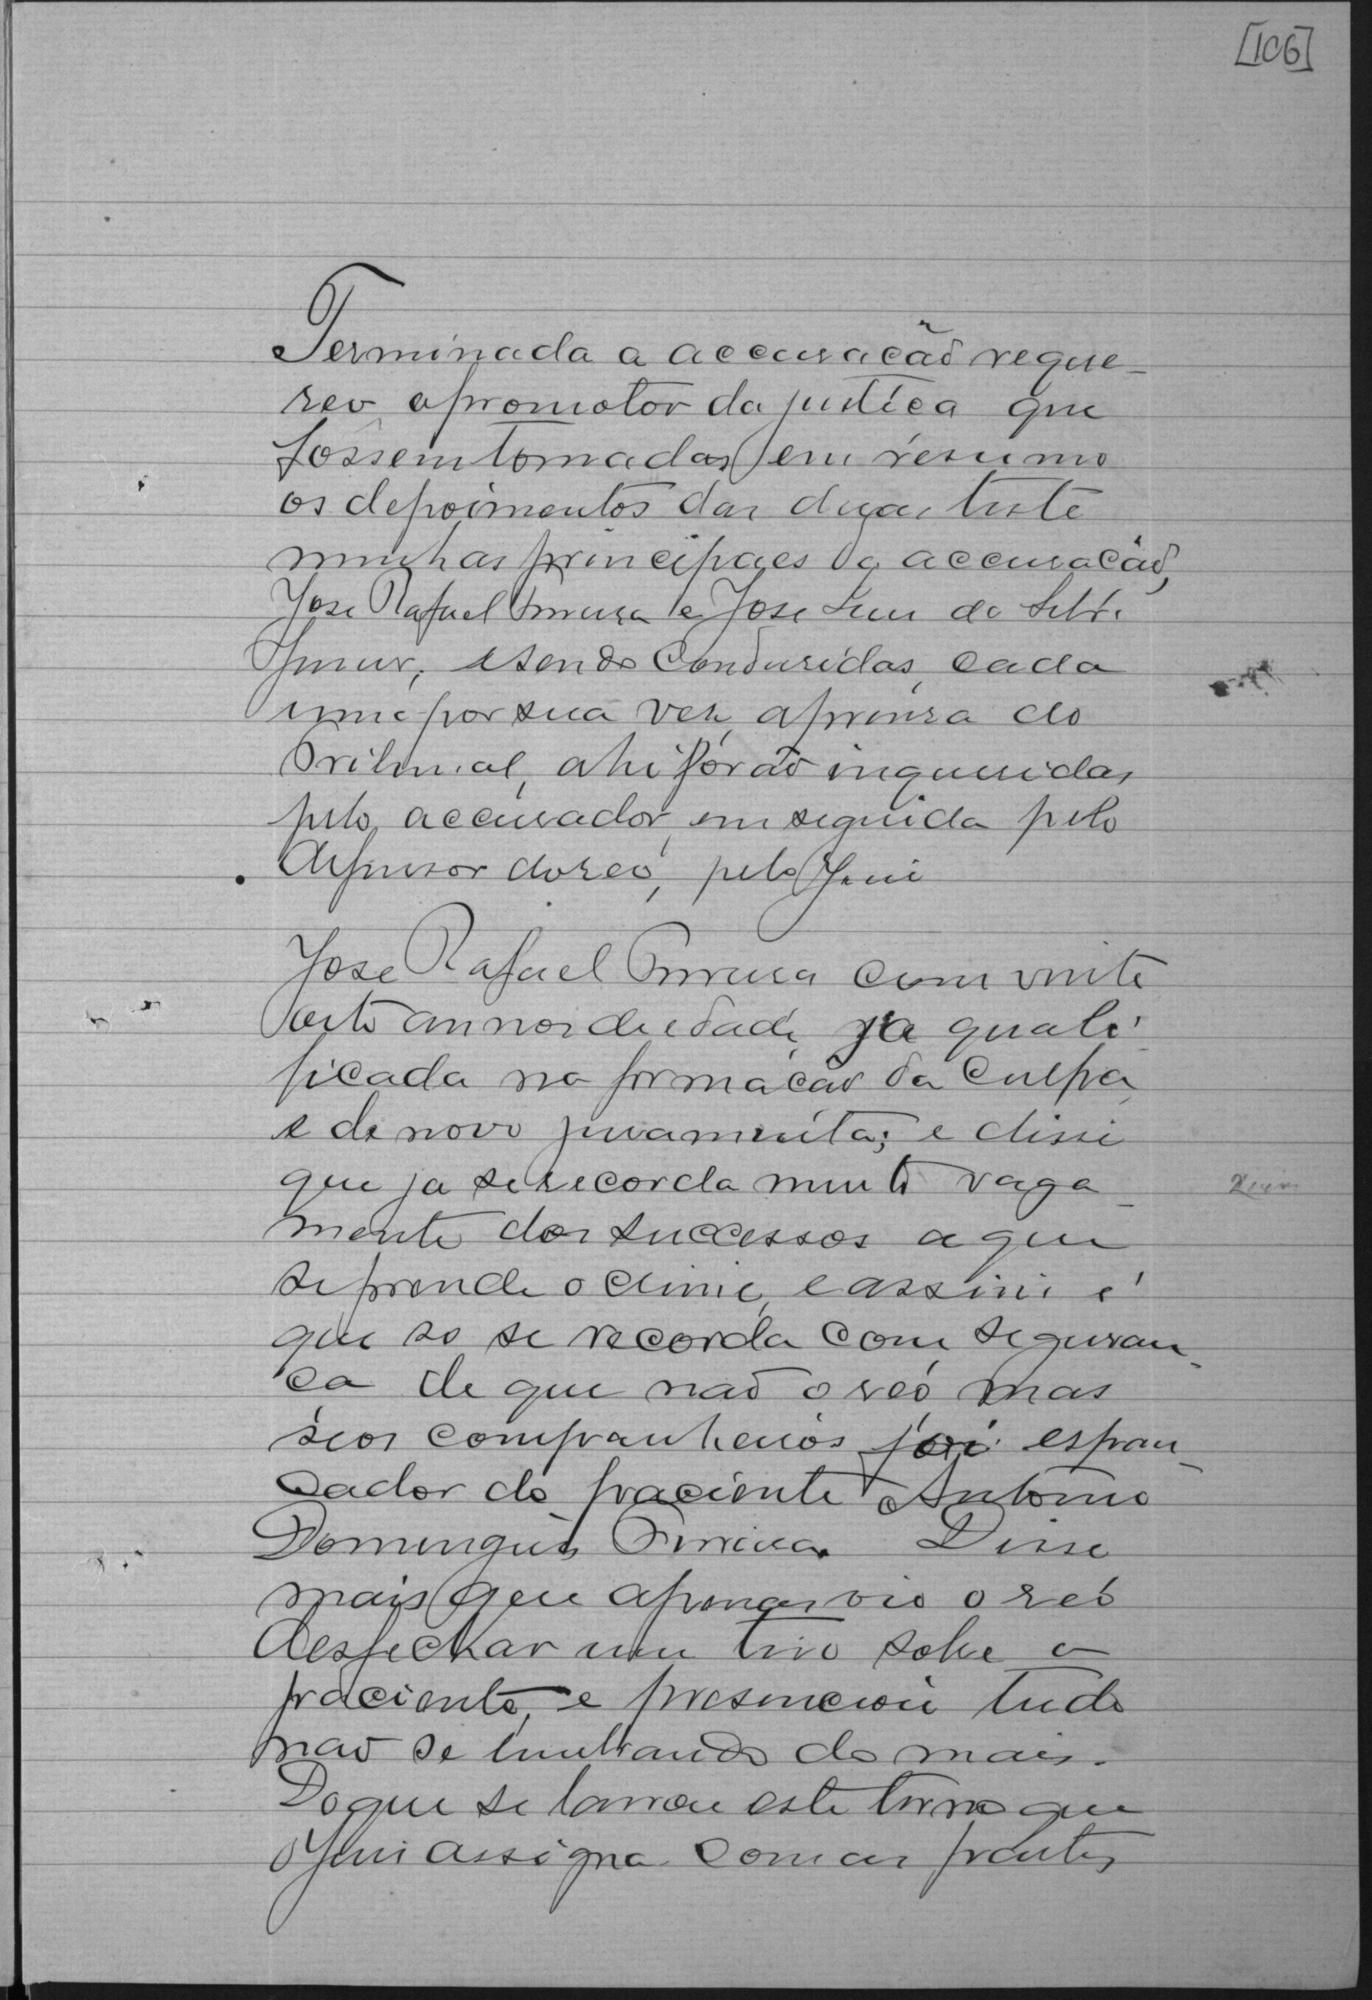 [106]
Terminada a accusação reque-
reo o promotor da justiça que
fossem tomadas em resumo
os depoimentos das duas teste
munhas principaes da accusação,
José Rafael Ferreira e José Luis de
Junior, e sendo conduzidas, cada
uma por sua vez, a prensa do
Tribunal, ahi fórão inqueridas
pelo accusador, em seguida pelo
defensor do reó, pelo Juiz
José Rafael Ferreira com vinte
oito annos de edade, ja quali
ficada na formação da culpa,
e de novo juramenta; e disse
que ja se recorda muito vaga-
mente dos successos a que
se prende o crime, e assim é
que so se recorda com seguran-
ça de que não o reó, mas
seos companheiros foi espan-
cador do paciente Antonio
Domingues Ferreira. Disse
mais que apenas vio o reó
desfechar um tiro sobre o
paciente, e presenciou tudo
não se lembrando do mais.
Do que se lavrou este termo que
o Juiz assigna com as partes